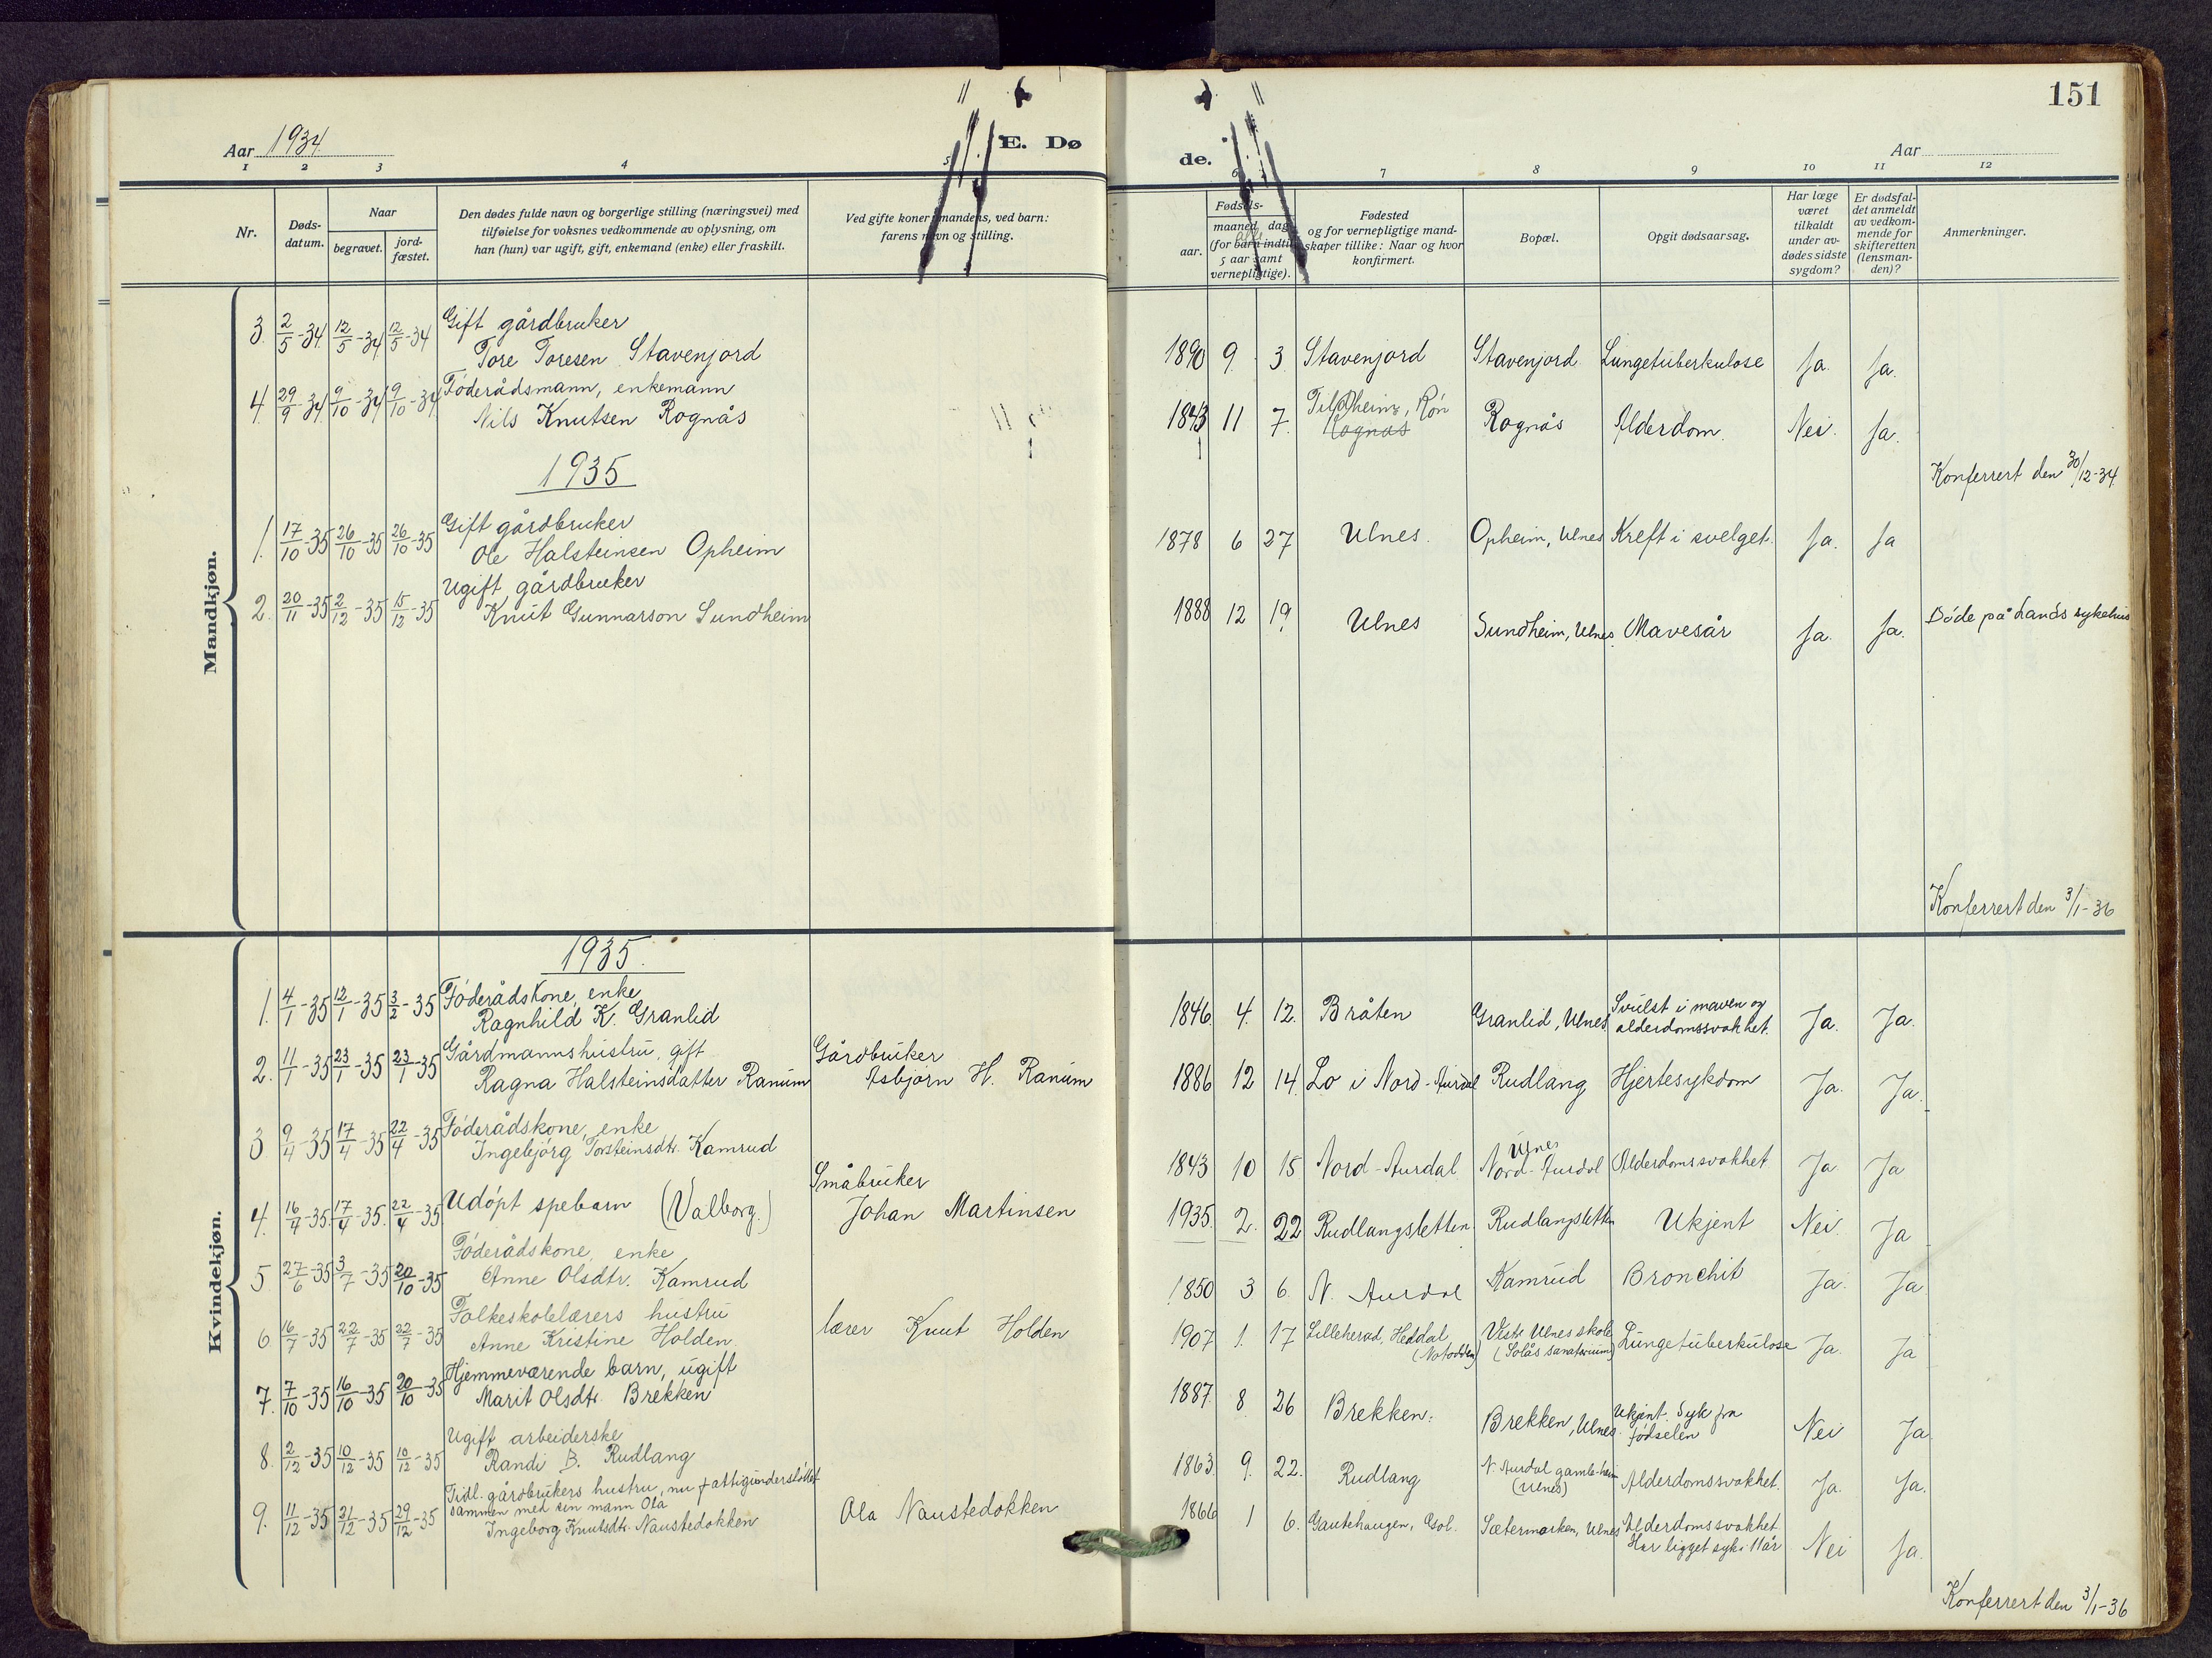 151
Aar 1934
E. Dø
de.
Aar
1 2 3 4 5 6 7 8 9 10 11 12
Nr.
Døds-
datum.
Naar
begravet.
jord-
fæstet.
Den dødes fulde navn og borgerlige stilling (næringsvei) med
tilføielse for voksnes vedkommende av oplysning, om
han (hun) var ugift, gift, enkemand (enke) eller fraskilt.
Ved gifte koner: mandens, ved barn:
farens navn og stilling.
Fødsels-
aar.
maaned dag
(for barn indtil
5 aar samt
vernepligtige).
Fødested
og for vernepligtige mand-
skaper tillike: Naar og hvor
konfirmert.
Bopæl.
Opgit dødsaarsag.
Har læge
været
tilkaldt
under av-
dødes sidste
sygdom?
Er dødsfal-
det anmeldt
av vedkom-
mende for
skifteretten
(lensman-
den)?
Anmerkninger.
Mandkjøn.
3. 2/5-34 12/5-34 12/5-34 Gift gårdbruker
Tore Toresen Stavenjord 1890 9. 3 Stavenjord Stavenjord Lungetuberkulose Ja. Ja.
4. 29/9-34 9/10-34 9/10-34 Føderådsmann, enkemann
Nils Knutsen Rognås 1843 11 7. Rognås Rognås Alderdom. Nei. Ja.
1935
Konferrert den 30/12-34
1. 17/10-35 26/10-35 26/10-35 Gift gårdbruker
Ole Halsteinsen Opheim 1878 6 27 Ulnes. Opheim, Ulnes Kreft i svelget. Ja. Ja
2. 20/11-35 2/12-35 15/12-35 Ugift gårdbruker
Knut Gunnarson Sundheim 1888 12 19 Ulnes Sundheim, Ulnes. Mavesår Ja. Ja. Døde på Lands sykehus
Konferrert den 3/1-36
Kvindekjøn.
1935.
1. 4/1-35 12/1-35 3/2-35 Føderådskone, enke
Ragnhild K. Granlid 1846. 4. 12. Bråten Granlid, Ulnes Svulst i maven og
alderdomssvakhet. Ja. Ja.
2. 11/1-35 23/1-35 23/1-35 Gårdmannshustru, gift
Ragna Halsteinsdatter Ranum Gårdbruker
Asbjørn H. Ranum 1886 12 14. Lo i Nord-Aurdal Rudlang Hjertesykdom Ja. Ja.
3. 9/4-35 17/4-35 22/4-35 Føderådskone, enke
Ingebjørg Torsteinsdtr. Kamrud 1843 10 15 Nord-Aurdal Ulnes
Nord-Aurdal Alderdomssvakhet Ja. Ja
4. 16/4-35. 17/4-35. 22/4-35 Udøpt spebarn (Valborg.) Småbruker
Johan Martinsen 1935. 2. 22 Rudlangsletten Rudlangsletten Ukjent Nei. Ja
5 27/6-35 3/7-35 20/10-35 Føderådskone, enke
Anne Olsdtr. Kamrud 1850 3 6. N. Aurdal Kamrud Bronchit Ja. Ja
6. 16/7-35 22/7-35 22/7-35 Folkeskolelærers hustru
Anne Kristine Holden lærer Knut Holden 1907 1. 17 Lilleherad, Heddal
(Notodden) Vestr. Ulnes skole
(Solås sanatorium) Lungetuberkulose Ja. Ja
7. 7/10-35 16/10-35 20/10-35 Hjemmeværende barn, ugift
Marit Olsdtr. Brekken 1887. 8 26 Brekken. Brekken, Ulnes. Ukjent. Syk fra
fødselen Nei Ja
8. 2/12-35 10/12-35 10/12-35 Ugift arbeiderske
Randi B. Rudlang 1863. 9. 22. Rudlang N. Aurdal gamle-heim
(Ulnes) Alderdomssvakhet. Ja. Ja.
9. 11/12-35 21/12-35 29/12-35 Tidl. gårdbrukers hustru, nu fattigunderstøttet
sammen med sin mann Ola
Ingeborg Knutsdtr. Naustedokken Ola Naustedokken 1866 1 6. Gautehaugen, Gol. Sætermarken, Ulnes Alderdomssvakhet.
Har ligget syk i 11 år Nei Ja.
Konferrert den 3/1-36